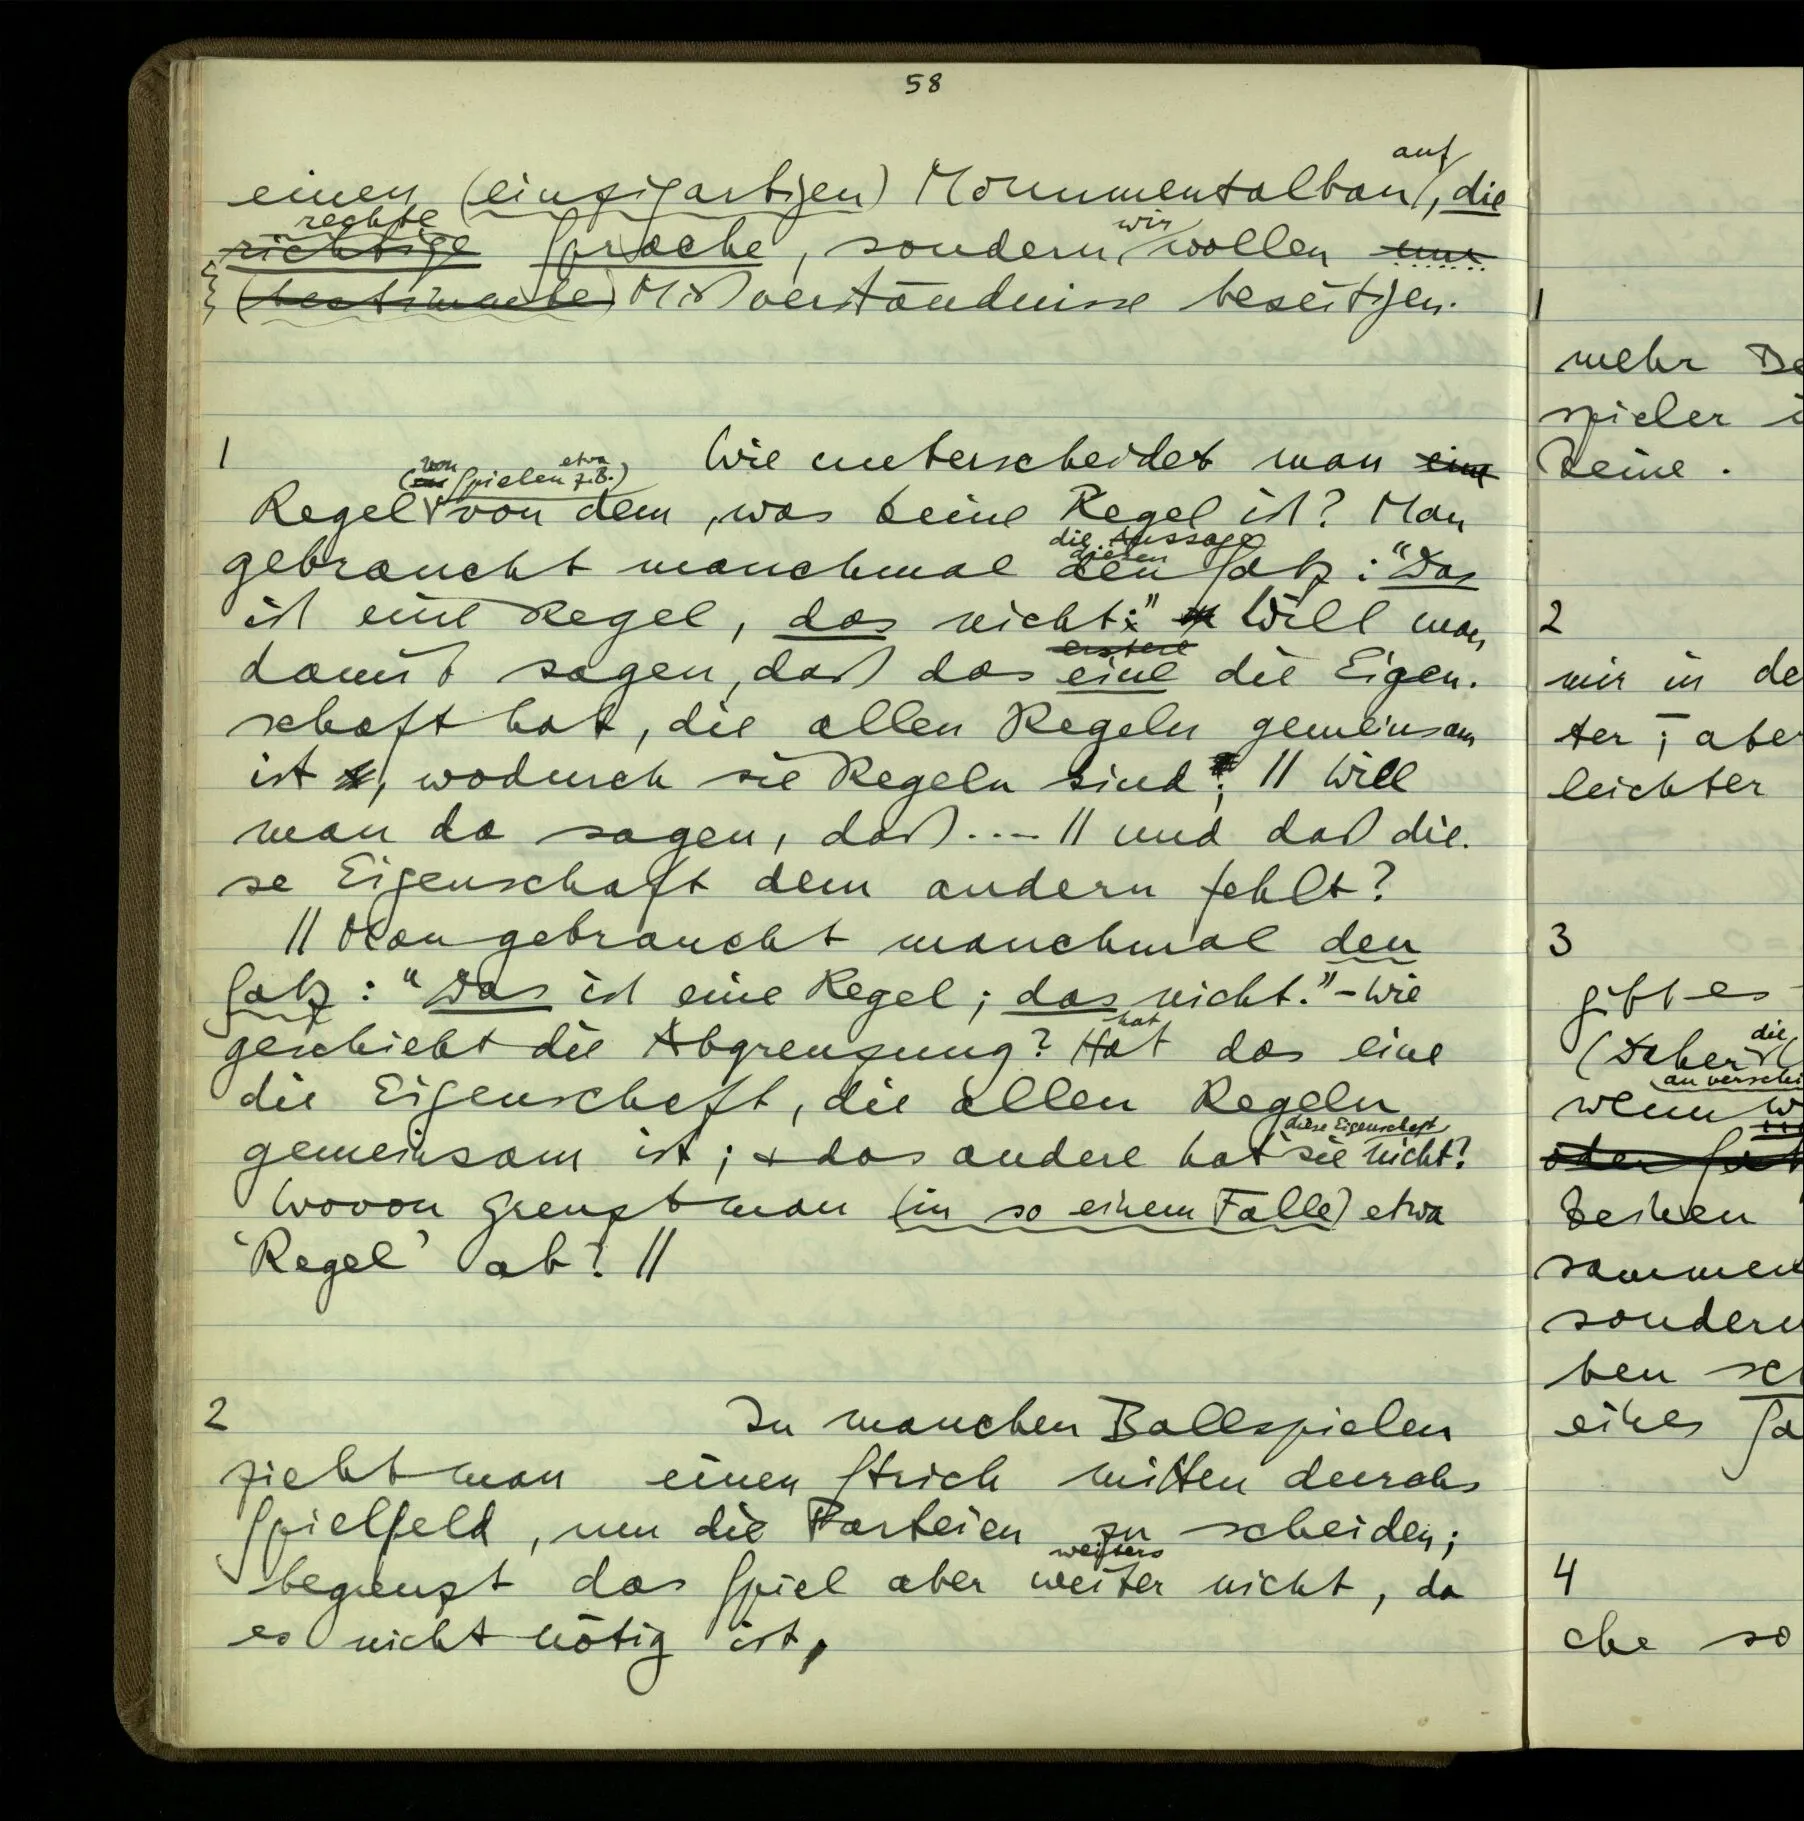 58
auf
einen (einzigartigen) Monumentalbau, die
rechte
richtige Sprache, sondern wir wollen nur
(bestimmte) Mißverständnisse beseitigen.
1
Wie unterscheidet man eine
(von Spielen etwa z.B.)
Regel von dem, was keine Regel ist? Man
die Aussage
diesen
gebraucht manchmal den Satz: "Das
ist eine Regel, das nicht:" Will man
erstere
damit sagen, daß das eine die Eigen-
schaft hat, die allen Regeln gemeinsam
ist, wodurch sie Regeln sind; // Will
man da sagen, daß .... // und daß die-
se Eigenschaft dem andern fehlt?
// Man gebraucht manchmal den
Satz: "Das ist eine Regel; das nicht." – Wie
hat
geschieht die Abgrenzung? Hat das eine
die Eigenschaft, die allen Regeln
diese Eigenschaft
gemeinsam ist; & das andere hat sie nicht?
Wovon grenzt man (in so einem Falle) etwa
'Regel' ab? //
2
In manchen Ballspielen
zieht man einen Strich mitten durchs
Spielfeld, um die Parteien zu scheiden;
weiters
begrenzt das Spiel aber weiter nicht, da
es nicht nötig ist,
1
mehr De
spieler i
keine.
2
mir in de
ter; aber
leichter
3
gibt es
die
(Daher
an verschi
wenn w
oder Sät
keinen
sammen
sondern
ben sch
eines Sa
4
che so